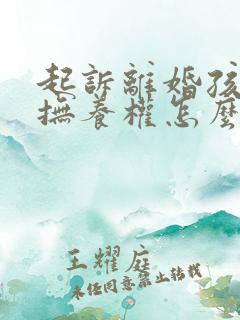 起訴離婚孩
撫養權怎麼
王耀庭
未經同意禁止轉載